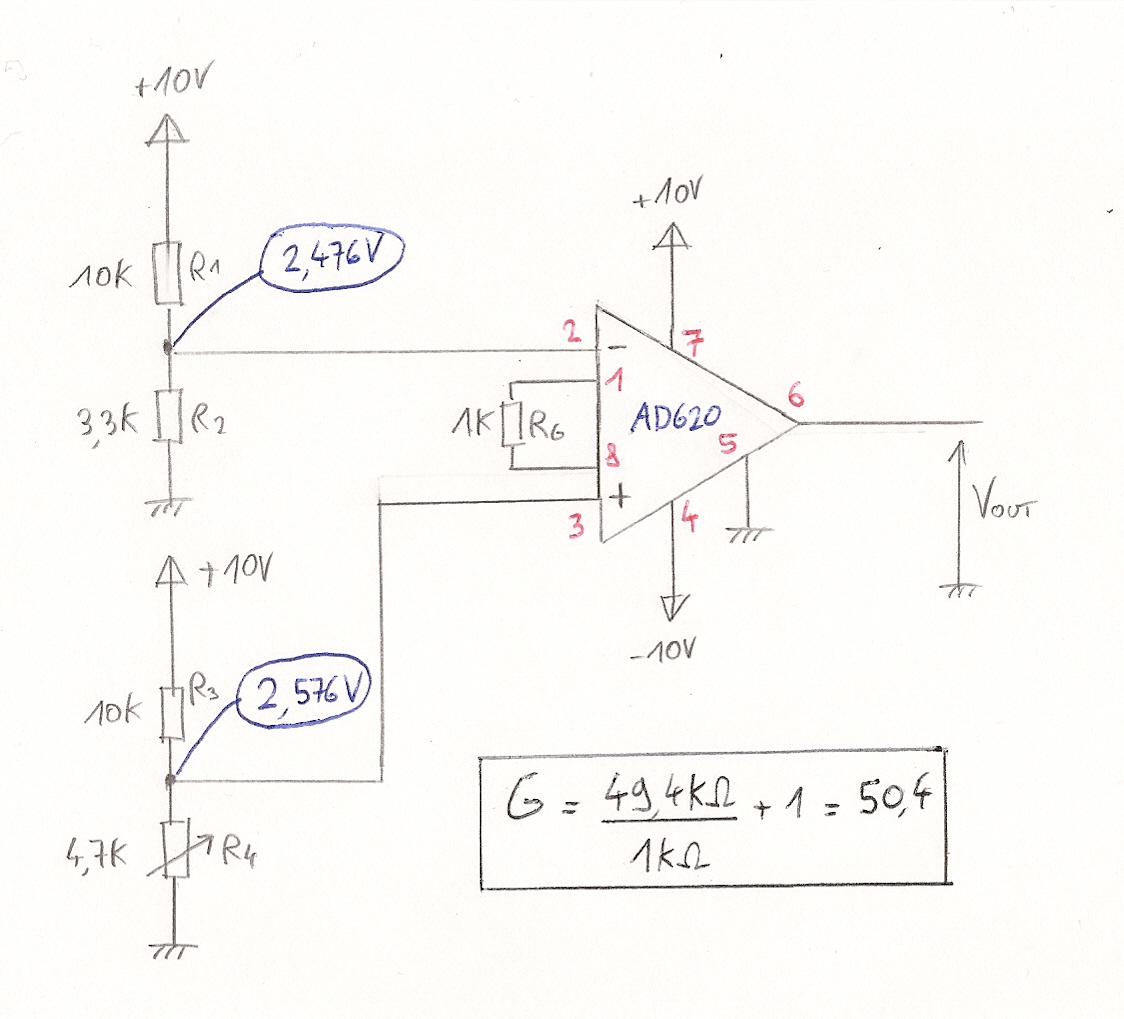 +10V
10K R1
2,476V
3,3K R2
+10V
10K R3
2,576V
4,7K R4
+10V
2
-
7
1
1K RG
AD620
6
8
5
+
3
4
-10V
VOUT
G = 49,4KΩ / 1KΩ + 1 = 50,4